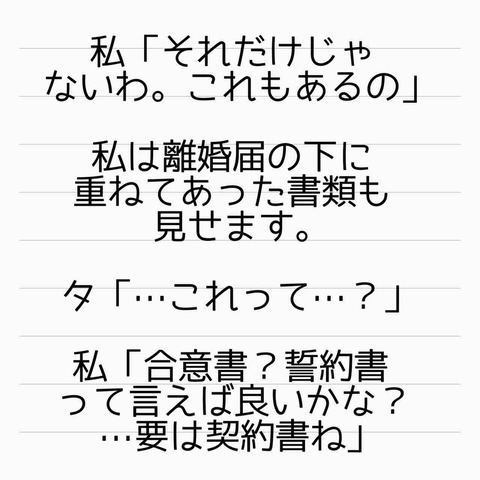 私「それだけじゃ
ないわ。これもあるの」
私は離婚届の下に
重ねてあった書類も
見せます。
タ「…これって…？」
私「合意書？誓約書
って言えば良いかな？
…要は契約書ね」